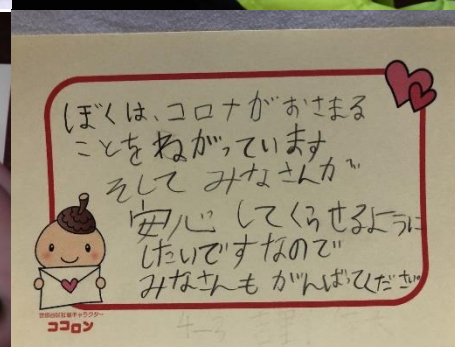 ぼくは、コロナがおさまる
ことをねがっています
そしてみなさんが
安心してくらせるように
したいですなので
みなさんもがんばってください
ココロン